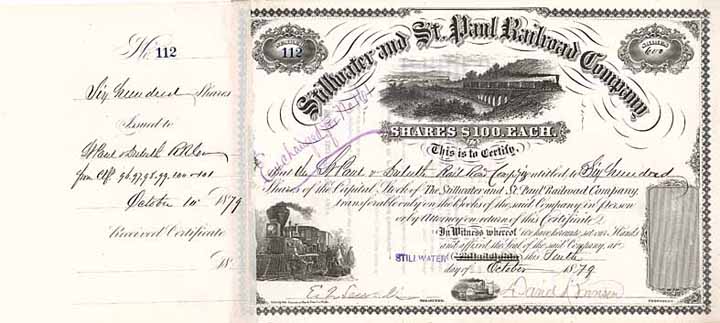 No. 112
Six Hundred Shares
Issued to
St Paul & Duluth RR Co
from Ctfs 96, 97, 98, 99, 100 & 101
October 10 1879
Received Certificate
18
112
600
Stillwater and St. Paul Railroad Company
SHARES $100. EACH.
This is to Certify,
that the St Paul & Duluth Rail Road Company is entitled to Six Hundred
Shares of the Capital Stock of The Stillwater and St. Paul Railroad Company,
transferable only on the Books of the said Company in person
or by Attorney on return of this Certificate.
In Witness whereof we have hereunto set our Hands
and affixed the Seal of the said Company, at
STILLWATER Philadelphia this Tenth
day of October 1879